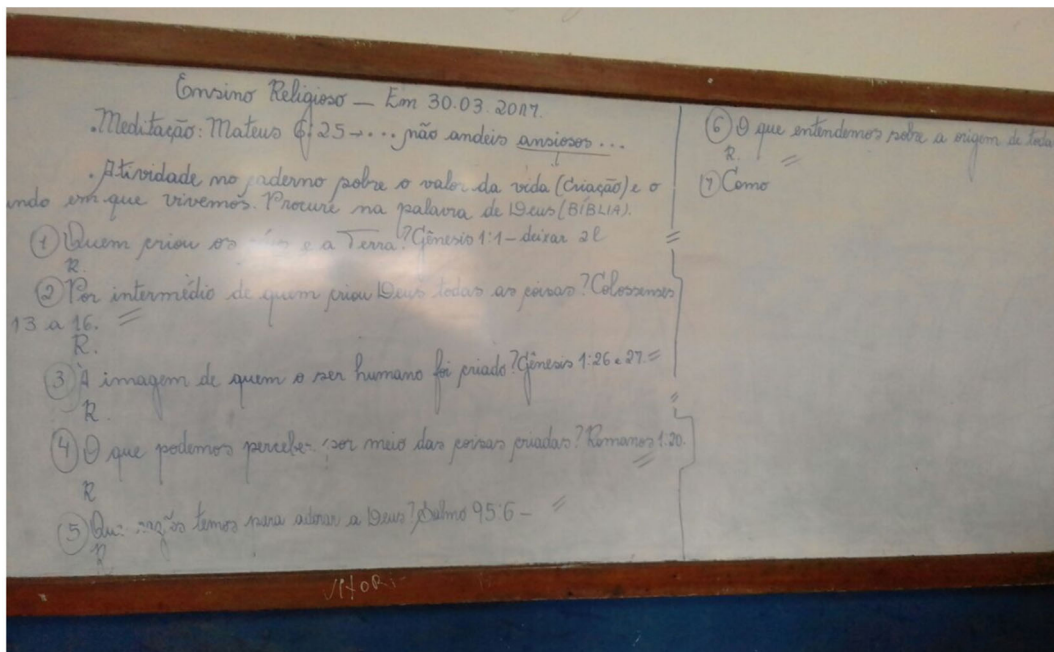 Ensino Religioso — Em 30.03.2017.
. Meditação: Mateus 6:25 → ... não andeis ansiosos ...
. Atividade no caderno sobre o valor da vida (criação) e o
ndo em que vivemos. Procure na palavra de Deus (BÍBLIA).
① Quem criou os e a Terra? Gênesis 1:1 – deixar 2l
R.
② Por intermédio de quem criou Deus todas as coisas? Colossenses
13 a 16. =
R.
③ À imagem de quem o ser humano foi criado? Gênesis 1:26 e 27. =
R.
④ O que podemos perceber por meio das coisas criadas? Romanos 1:20.
R
⑤ temos para adorar a Deus? Salmo 95:6 –
R.
⑥ O que entendemos sobre a origem de toda
R.
⑦ Como